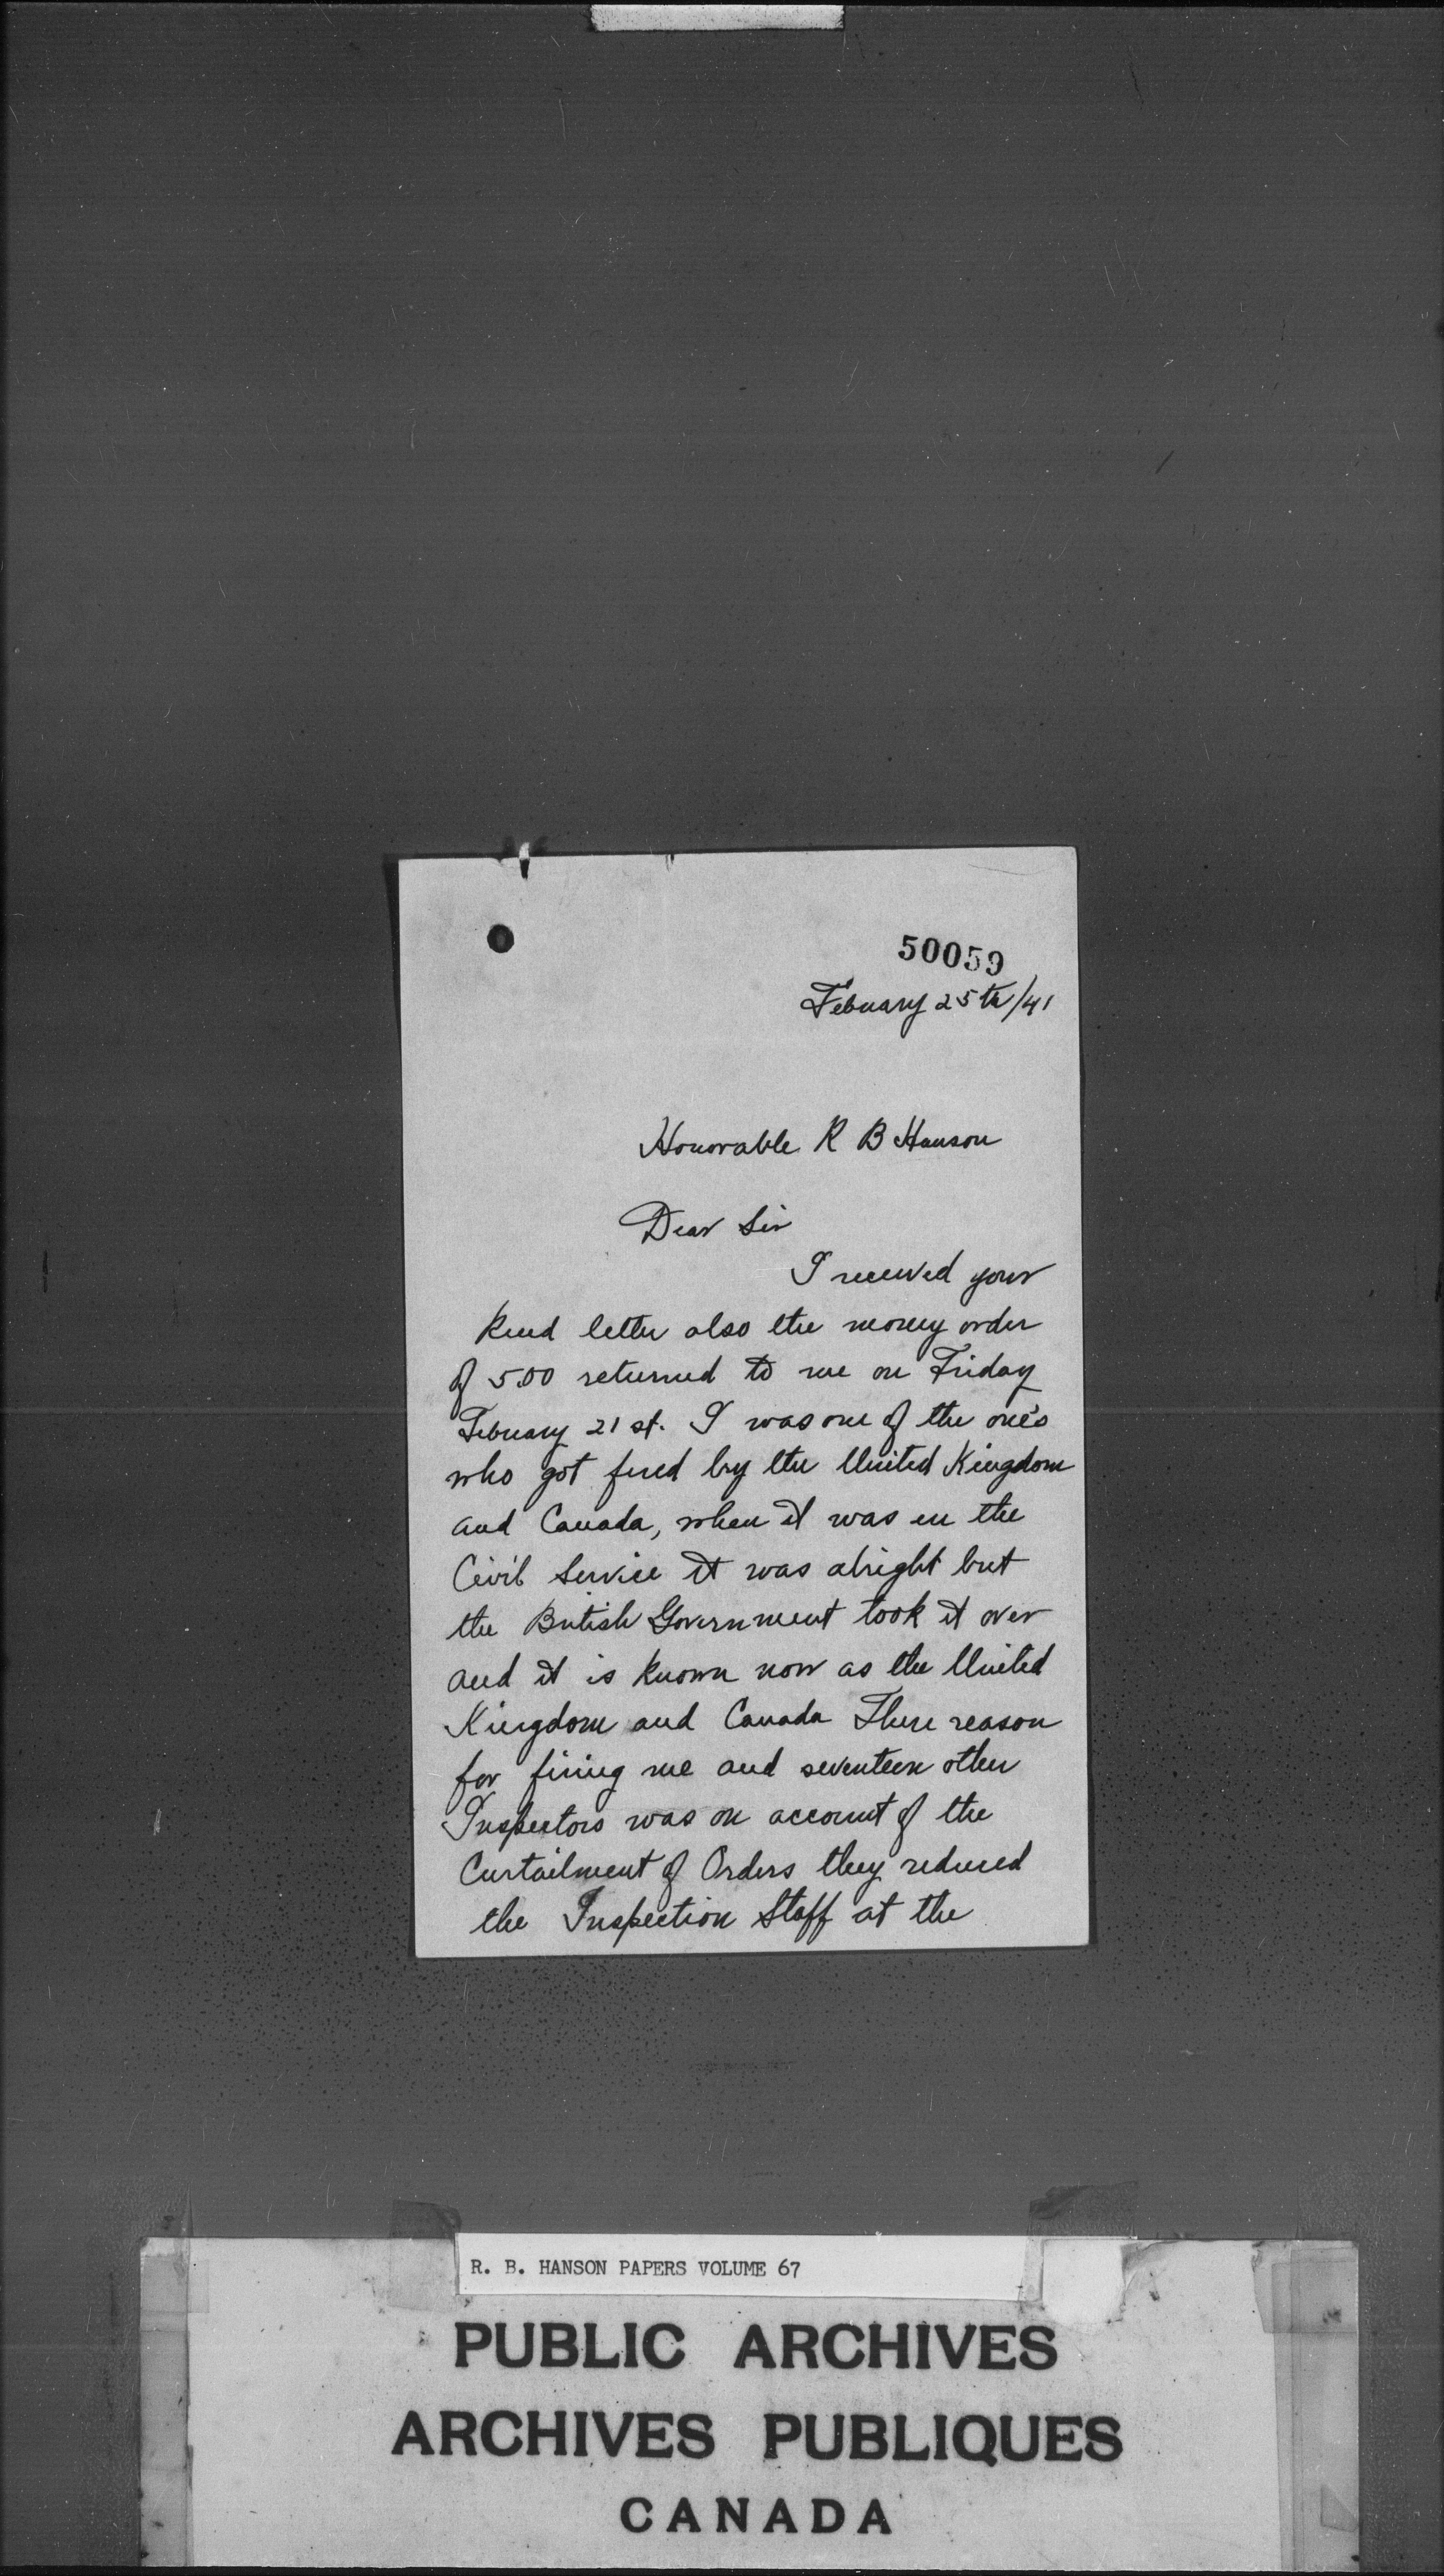 50059
Febuary 25th/41
Honorable R B Hanson
Dear Sir
I received your
kind letter also the money order
of 5.00 returned to me on Friday
Febuary 21 st. I was one of the one's
who got fired by the United Kingdom
and Canada, when it was in the
Civil Service it was alright but
the British Government took it over
and it is known now as the United
Kingdom and Canada There reason
for firing me and seventeen other
Inspectors was on account of the
Curtailment of Orders they reduced
the Inspection Staff at the
R. B. HANSON PAPERS VOLUME 67
PUBLIC ARCHIVES
ARCHIVES PUBLIQUES
CANADA